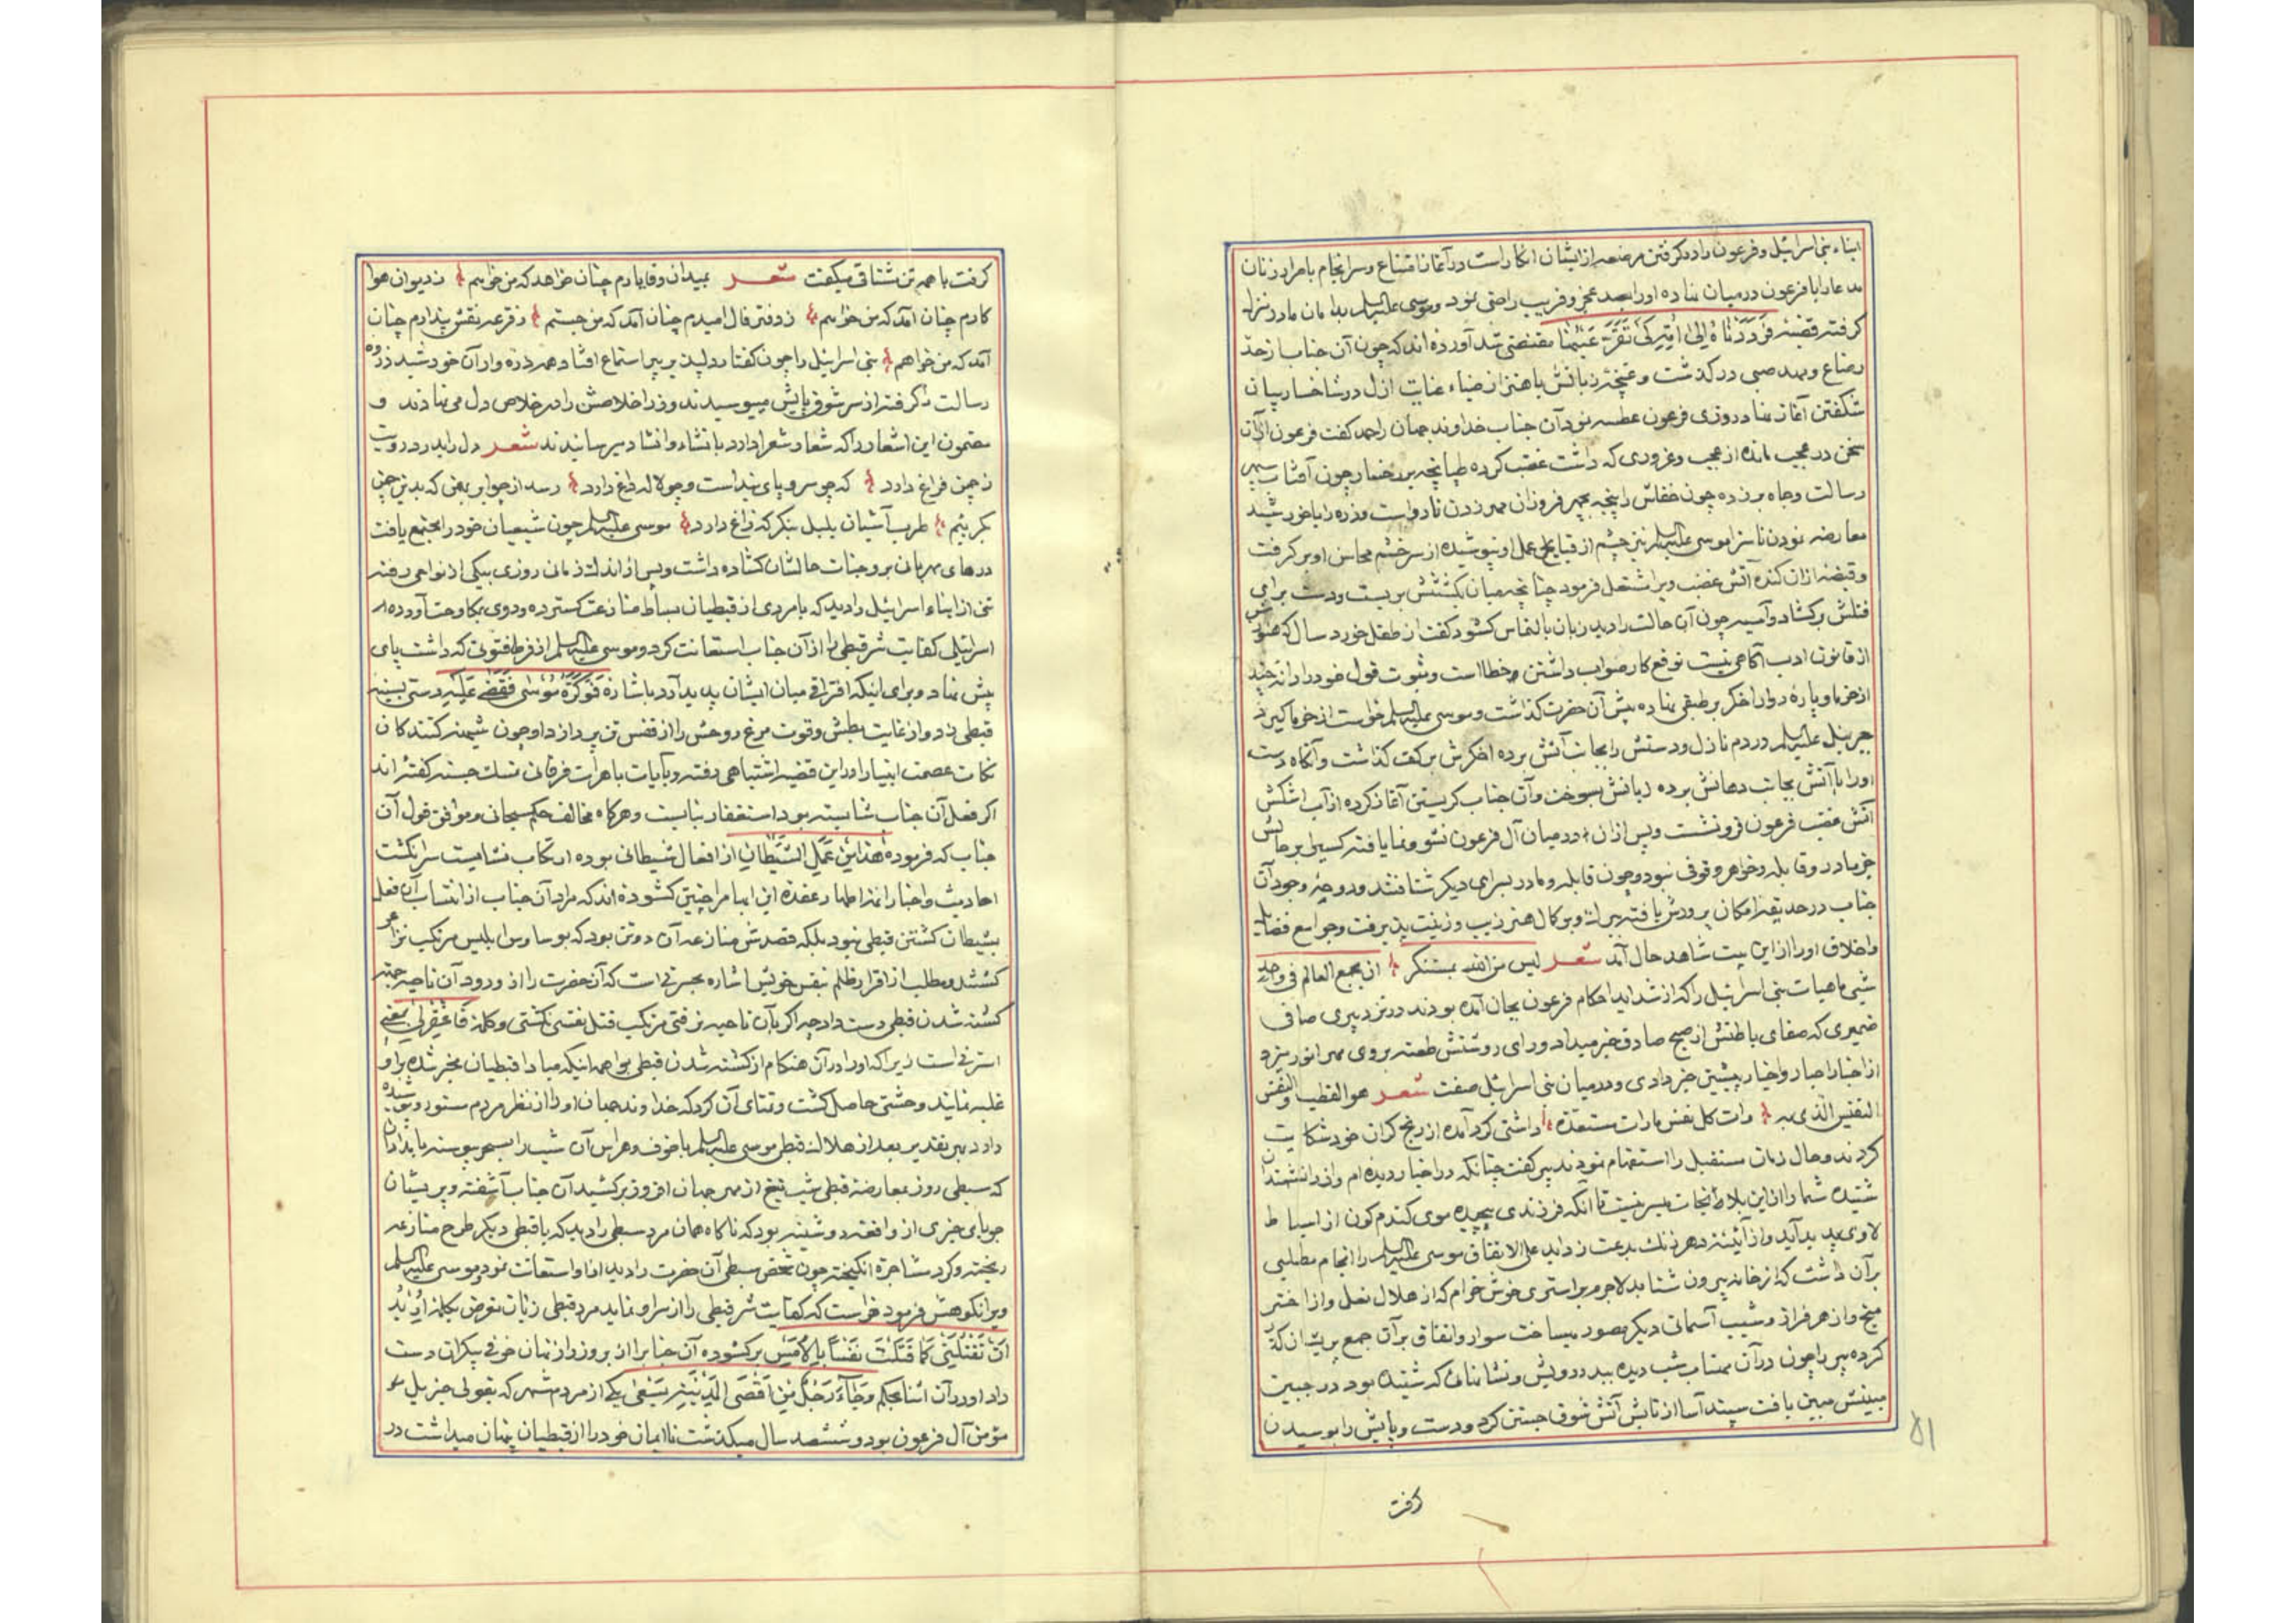 ابناء بنی اسرائیل و فرعون را در گرفتن مرضعه از ایشان انکار است در آغاز امتناع و سرانجام با مراد زنان
مدعا را با فرعون در میان نهاده او را بصد عجز و فریب راضی نمود و موسی علیه السلم بدامان مادر منزل
گرفته قضیه فَرَدَدْنَاهُ اِلی اُمِّهِ کَیْ تَقَرَّ عَیْنُهَا مقتضی شد آورده اند که چون آن جناب از حد
رضاع و مهد صبی در گذشت و غنچه زبانش باهتزاز ضیاء عنایت ازل در شاخسار بیان
شکفتن آغاز نهاد روزی فرعون عطسه نمود آن جناب خداوند جهان را حمد گفت فرعون از آن
سخن در عجب مانده از عجب و غروری که داشت غضب کرده طپانچه بر رخسار چون آفتاب سپهر
رسالت و جاه بر زده چون خفاش را پنجه بچهر فروزان مهر زدن نارواست و ذره را با خورشید
معارضه نمودن ناسزا موسی علیه السلم نیز چشم از قبایح عمل او نپوشیده از سر خشم محاسن او بر گرفت
و قبضه ازان کنده آتش غضب ویرا مشتعل فرمود چنانچه میان بکشتنش بر بست و دست برای
قتلش بر گشاد و آسیه چون آن حالت را دید زبان بالتماس گشود گفت از طفل خورد سال که هنوز
از قانون ادب آگاهی نیست توقع کار صواب داشتن خطا است و ثبوت قول خود را دانه چند
از خرما و پاره دوار اخگر بر طبقی نهاده پیش آن حضرت گذاشت و موسی علیه السلم خواست از خرما گیرد
جبرئیل علیه السلم در دم نازل و دستش را بجانب آتش برده اخگرش بر کف گذاشت و آنگاه دست
او را با آتش بجانب دهانش برده زبانش بسوخت و آن جناب گریستن آغاز کرده از آب اشکش
آتش غضب فرعون فرو نشست و پس از ان در میان آل فرعون نشو و نما یافته کسی را بر حالش
جز مادر و قابله و خواهر وقوفی نبود و چون قابله و مادر بسرای دیگر شتافتند و دوحه وجود آن
جناب در حدیقه امکان پرورش یافته پیرایه و بر کمال هنر زیب و زینت پذیرفت و جوامع فضایل
و اخلاق او را از این بیت شاهد حال آمد شعر لیس من الله بمستنکر ان یجمع العالم فی واحد
شبی ماهیات بنی اسرائیل را که از شداید احکام فرعون بجان آمده بودند در نزد پیری صافی
ضمیری که صفای باطنش از صبح صادق خبر میداد و رای روشنش طعنه بروی مهر انور میزد
از اخبار احبار و اخیار پیشین خبر دادی و در میان بنی اسرائیل صفت شعر هو القطب و النفس
النفیس الذی به وات کل نفس بارات مستعدة داشتی گرد آمده از رنج گران خود شکایت
کردند و حال زمان مستقبل را استفهام نمودند پیر گفت چنانکه در اخبار دیده ام و از دانشمندان
شنیده شما را از این بلاها نجات میسر نیست تا آنکه فرزندی پیچیده موی گندم گون از اسباط
لاوی پدید آید و از آئینه دهر زنک بدعت زداید علی الاتفاق موسی علیه السلم را انجام مطلبی
بر آن داشت که از خانه بیرون شتابد لاجرم بر استری خوش خرام که از هلال نعل و از اختر
میخ و از هر فراز و نشیب آسمانی دیگر مصور میساخت سوار و اتفاق بر آن جمع پریشان گذر
کرده پیر را چون در آن مهتاب شب دیده بیدر رویش و نشانهائی که شنیده بود در جبین
مبینش مبین یافت سپند آسا از تابش آتش شوق جستن کرد و دست و پایش را بوسیدن
گرفت
۵۱
گرفت با همه تن مشتاق میگفت شعر بمیدان وفا یارم چنان خواهد که من خواهم ز دیوان هوا
کارم چنان آمد که من خواهم ز دفتر فال امیدم چنان آمد که من جستم ز قرعه نقش پندارم چنان
آمد که من خواهم بنی اسرائیل را چون گفتار دلپذیر پیر استماع افتاد همه ذره وار آن خورشید ذروه
رسالت را گرفته از سر شوق پایش میبوسیدند و زر اخلاصش را در خلاص دل می نهادند و
مضمون این اشعار را که شعار شعرا دارد بانشاء و انشاد میرسانیدند شعر دل را بدرد رویت
ز چمن فراغ دارد که چو سرو پای بند است و چو لاله داغ دارد رسد از جوابر بغض که بدین چمن
بگرییم طرب آشیان بلبل بنگر که زاغ دارد موسی علیه السلم چون شیعیان خود را مجتمع یافت
درهای مهربانی بر وجنات حالشان گشاده داشت و پس از اندک زمانی روزی بیکی از نواحی رفته
تنی از ابناء اسرائیل را دید که با مردی از قبطیان بساط منازعت گسترده و روی بمکاوحت آورده اند
اسرائیلی کفایت شر قبطی را از آن جناب استعانت کرد و موسی علیه السلم از فرط فتوتی که داشت پای
پیش نهاد و برای اینکه افتراقی میان ایشان پدید آرد باشاره فَوَکَزَهُ مُوسی فَقَضی عَلَیْهِ دستی بسینه
قبطی زد و از غایت بطش و قوت مرغ روحش را از قفس تن پرواز داد چون شیمه کنندکان
نکات عصمت انبیا را در این قضیه اشتباهی رفته و بآیات باهرات فرقانی تمسک جسته گفته اند
اگر فعل آن جناب شایسته بود استغفار نبایست و هرگاه مخالف حکم سبحانی و موافق قول آن
جناب که فرموده هذا مِن عَمَلِ الشَّیْطانِ از افعال شیطانی بوده ارتکاب نشایست سرانگشت
احادیث و اخبار ائمه اطهار عقده این ابهام را چنین گشوده اند که مراد آن جناب از انتساب آن فعل
بشیطان کشتن قبطی نبود بلکه قصدش منازعه آن دو تن بود که بوساوس ابلیس مرتکب نزاع
گشتند و مطلب از اقرار ظلم بنفس خویش اشاره بحسرتی است که آن حضرت را از ورود آن ناحیه جهة
کشته شدن قبطی دست داد چه اگر بآن ناحیه نرفتی مرتکب قتل نفسی نگشتی و کلمه فَاغْفِرْلی بمعنی
استر لی است زیرا که او را در آن هنگام از کشته شدن قبطی بواهمه اینکه مبادا قبطیان مخبر شده بر او
غلبه نمایند وحشتی حاصل گشت و تمنای آن کرد که خداوند جهان او را از نظر مردم مستور و پوشیده
دارد بهر تقدیر بعد از هلاک قبطی موسی علیه السلم با خوف و هراس آن شب را بسحر پیوسته بامدادان
که سبطی روز بمعارضه قبطی شب تیغ از مهر جهان افروز بر کشید آن جناب آشفته و پریشان
جویای خبری از واقعه دوشینه بود که ناگاه همان مرد سبطی را دید که با قبطی دیگر طرح منازعه
ریخته و گرد مشاجره انگیخته چون شخص سبطی آن حضرت را دید از او استعانت نمود و موسی علیه السلم
ویرا نکوهش فرمود خواست که کفایت شر قبطی را از سر او نماید مرد قبطی زبان تعرض بکلمه اَتُرِیدُ
اَنْ تَقْتُلَنی کَما قَتَلْتَ نَفْساً بِالْاَمْسِ بر گشوده آن جناب را از بروز راز نهان خوفی بیکران دست
داد و در آن اثنا بحکم وَجاءَ رَجُلٌ مِنْ اَقْصَی الْمَدینَةِ یَسْعی یکی از مردم شهر که بقولی حزبیل
مؤمن آل فرعون بود و ششصد سال میگذشت تا ایمان خود را از قبطیان پنهان میداشت در